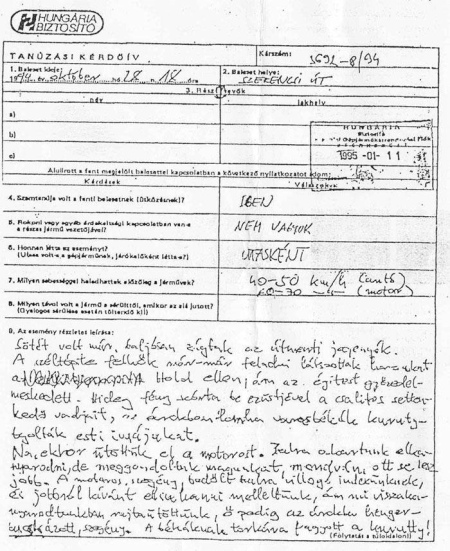 HUNGÁRIA
BIZTOSÍTÓ
TANÚZÁSI KÉRDŐÍV
Kárszám: 3692-8/94
1. Baleset ideje:
1994. év október hó 28 n. 18 óra
2. Baleset helye:
SZERENCSI ÚT
3. Résztvevők
név
lakhely
a)
b)
c)
HUNGÁRIA
Biztosító
1995 -01- 11
Alulírott a fent megjelölt balesettel kapcsolatban a következő nyilatkozatot adom:
Kérdések
Válaszok
4. Szemtanúja volt a fenti balesetnek (ütközésnek)?
IGEN
5. Rokoni vagy egyéb érdekeltségi kapcsolatban van-e
a részes jármű vezetőjével?
NEM VAGYOK
6. Honnan látta az eseményt?
(Utasa volt-e a gépjárműnek, járókelőként látta-e?)
UTASKÉNT
7. Milyen sebességgel haladhattak előzőleg a járművek?
40-50 km/h (autó)
60-70 -"- (motor)
8. Milyen távol volt a jármű a sérülttől, amikor az alá jutott?
(Gyalogos sérülése esetén töltendő ki)
9. Az esemény részletes leírása:
Sötét volt már, baljósan zúgtak az útmenti jegenyék.
A széltépte felhők már-már feladni látszottak harcukat
a Hold ellen, ám az égitest győzedel-
meskedett. Hideg fény szórta be ezüstjével a csalitos
vadjait, az árokban
esti
Na, ekkor ütöttük el a motorost. Balra akartunk elka-
nyarodni, de meggondoltuk magunkat, mondván ott se lesz
jobb. A motoros, szegény, bedőlt balra villogó indexünknek,
és jobbról kívánt elsuhanni mellettünk, ám mi visszaka-
nyarodtunkban rajtaütöttünk, ő pedig az árokba henger-
buckázott, szegény. A békáknak torkára fagyott a kurutty!
(Folytatás a túloldalon!)